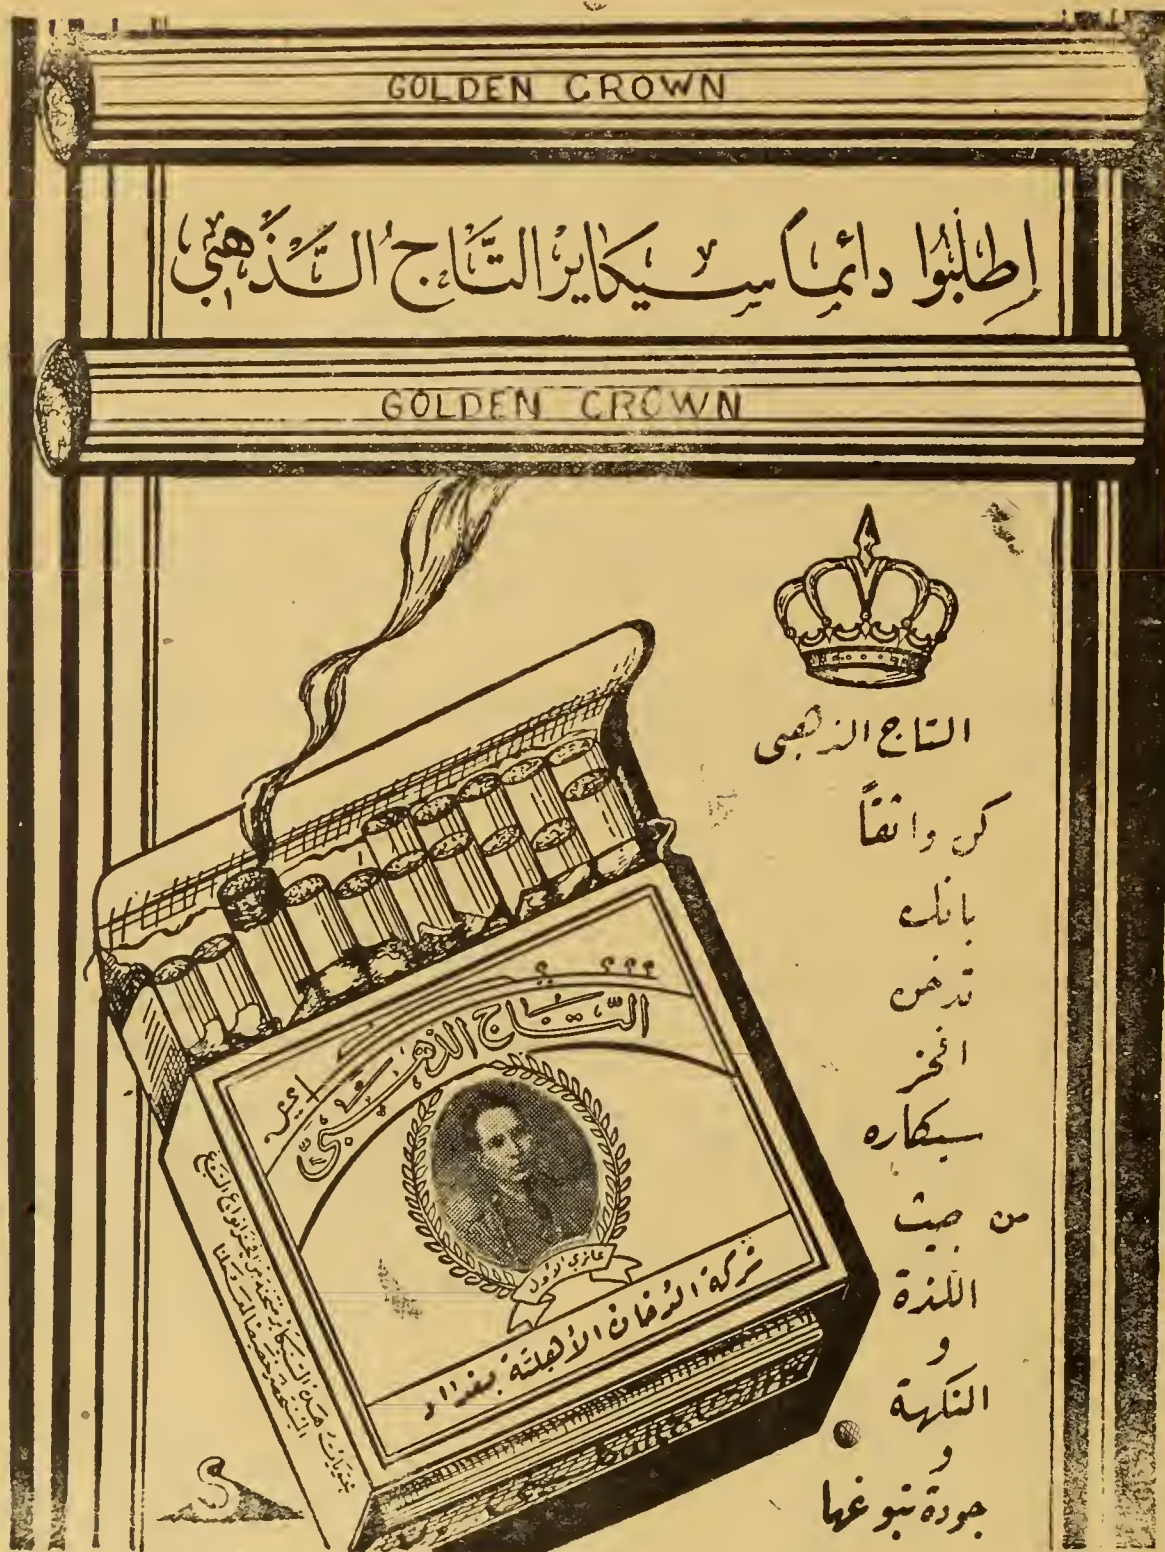 GOLDEN CROWN
إطلبُوا دائماً سيكاير التَّاجُ الذَّهبي
GOLDEN CROWN
التاج الذهبي
كن واثقاً
بانك
تدخن
افخر
سيكاره
من حيث
اللذة
و
النكهة
و
جودة تبوغها
التَّاج الذهبيّ
غازي الاول
شركة الدخان الأهلية بغداد